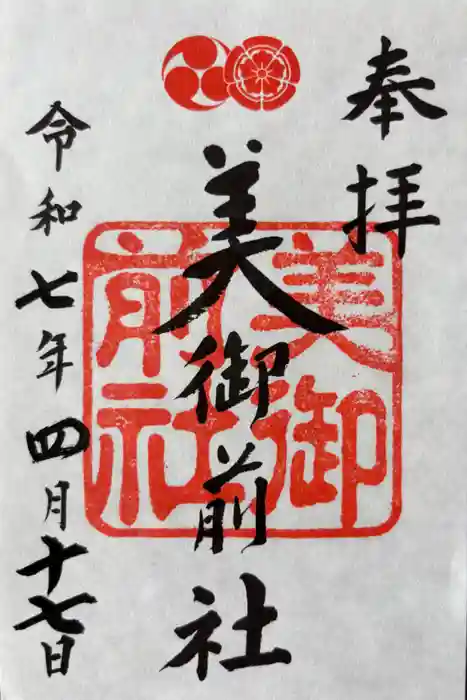 奉拝
美御前社
美御
前社
令和七年四月十七日